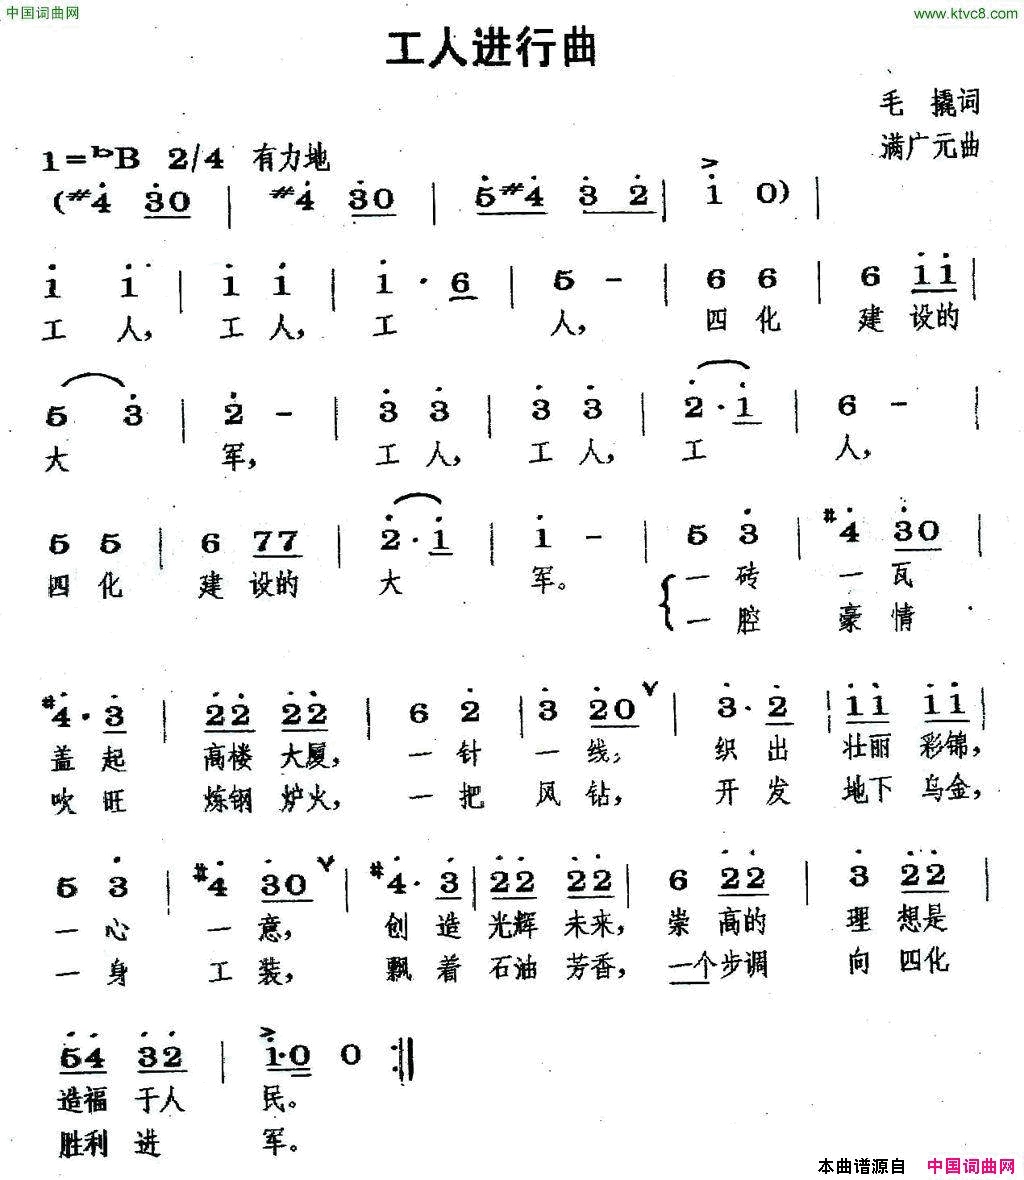 中国词曲网
www.ktvc8.com
工人进行曲
毛 撬词
满广元曲
1=♭B 2/4 有力地
(#4 30 | #4 30 | 5#4 3 2 | 1 0) |
1 1 | 1 1 | 1· 6 | 5 - | 6 6 | 6 11 |
工 人, 工 人, 工 人, 四 化 建 设的
5 3 | 2 - | 3 3 | 3 3 | 2·1 | 6 - |
大 军, 工 人, 工 人, 工 人,
5 5 | 6 77 | 2·1 | 1 - | 5 3 | #4 30 |
四 化 建 设的 大 军。 一 砖 一 瓦
一 腔 豪 情
#4·3 | 22 22 | 6 2 | 3 20 | 3·2 | 11 11 |
盖 起 高楼 大厦, 一 针 一 线; 织 出 壮丽 彩锦,
吹 旺 炼钢 炉火, 一 把 风 钻, 开 发 地下 乌金,
5 3 | #4 30 | #4·3 | 22 22 | 6 22 | 3 22 |
一 心 一 意, 创 造 光辉 未来, 崇 高的 理 想是
一 身 工 装, 飘 着 石油 芳香, 一个步调 向 四化
54 32 | 1·0 0 :||
造福 于人 民。
胜利 进 军。
本曲谱源自 中国词曲网